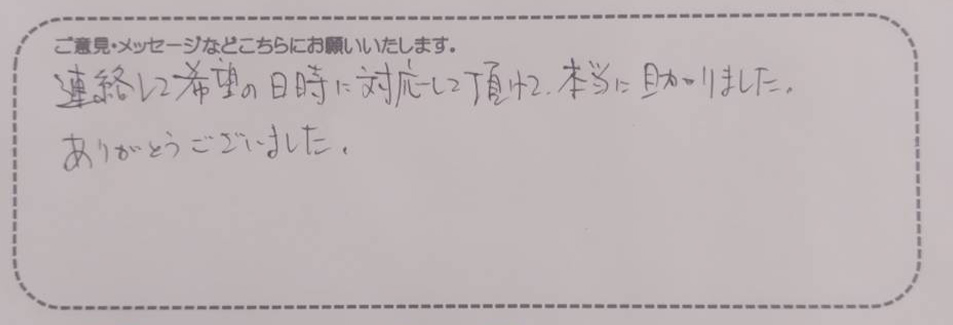 ご意見・メッセージなどこちらにお願いいたします。
連絡して希望の日時に対応して頂けて、本当に助かりました。
ありがとうございました。